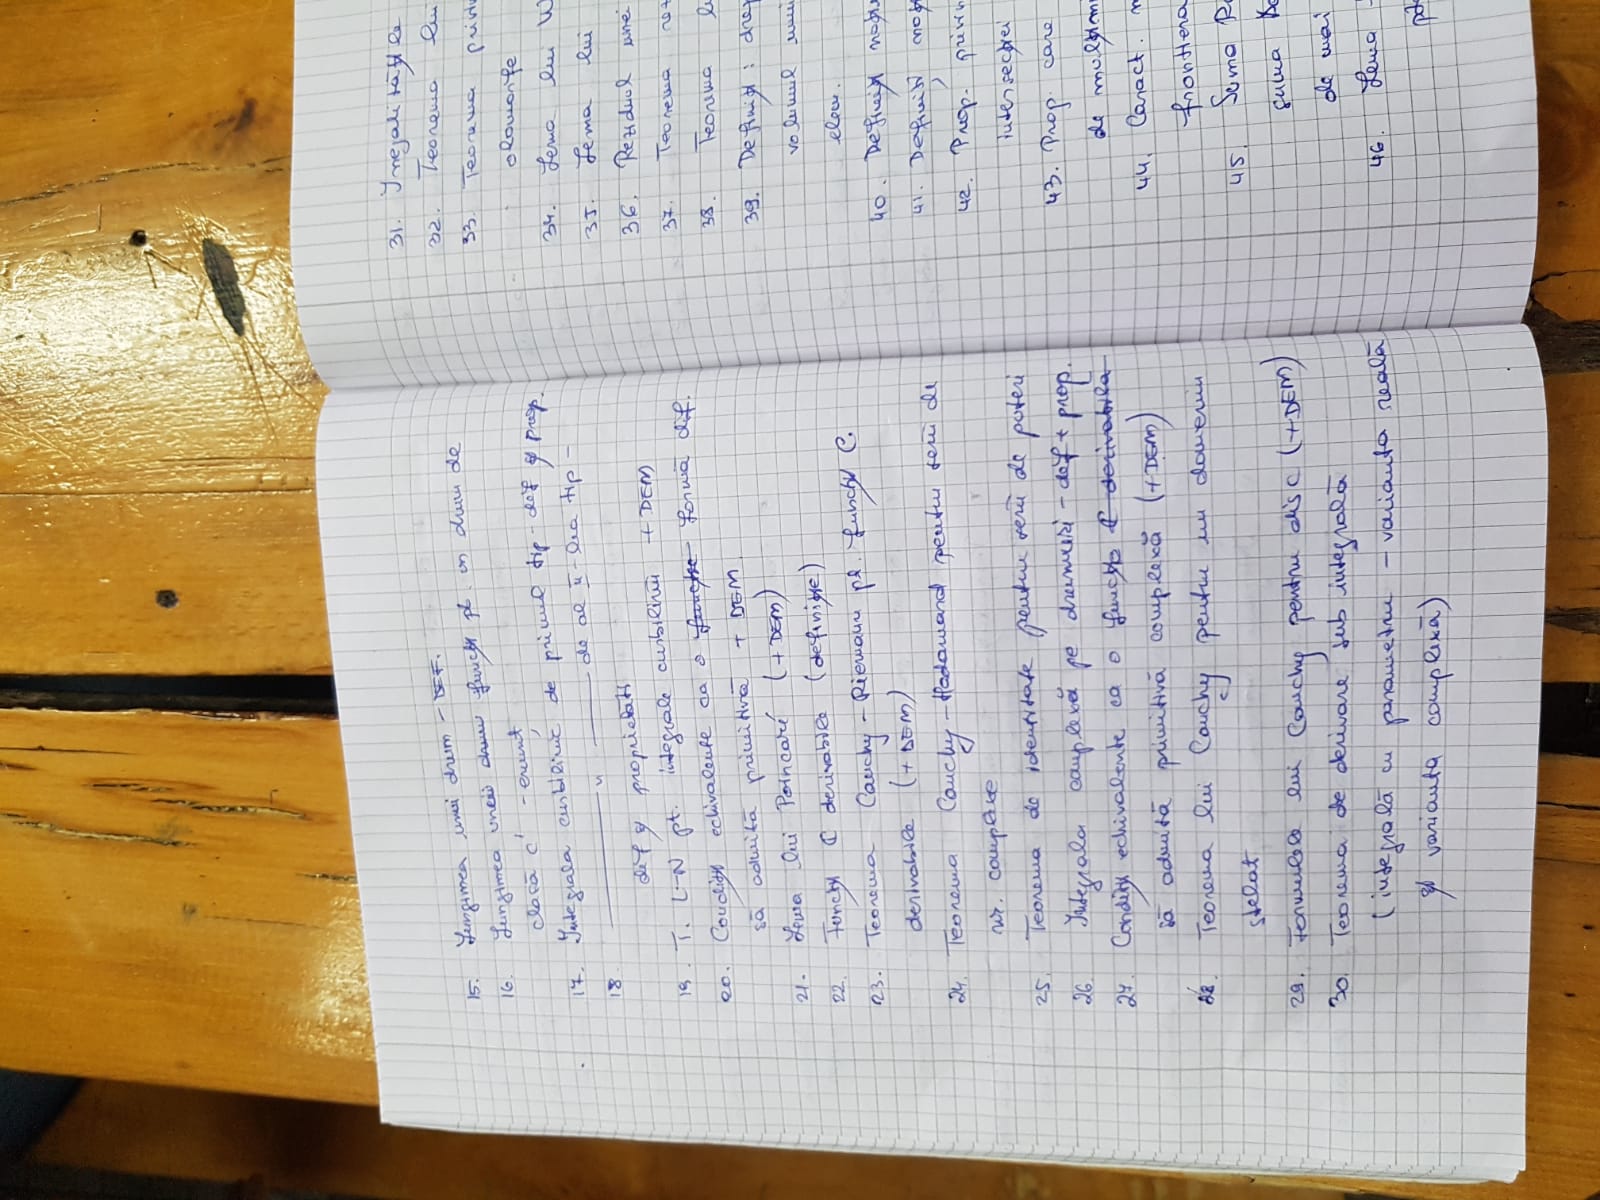 15. Lungimea unui drum - DEF.
16. Lungimea unui drum funcții pt. un drum de
clasă C¹ - enunț
17. Integrala curbilinie de primul tip - def și prop.
18. ——— " ——— de al II-lea tip -
def și proprietăți
19. T. L-N pt. integrale curbilinii + DEM
20. Condiții echivalente ca o funcție formă dif.
să admită primitivă + DEM
21. Lema lui Poincaré (+DEM)
22. Funcții ℂ derivabile (definiție)
23. Teorema Cauchy-Riemann pt. funcții C.
derivabile (+DEM)
24. Teorema Cauchy-Hadamard pentru serii de
nr. complexe
25. Teorema de identitate pentru serii de puteri
26. Integrala complexă pe drumuri - def + prop.
27. Condiții echivalente ca o funcție ℂ derivabila
să admită primitivă complexă (+DEM)
28. Teorema lui Cauchy pentru un domeniu
stelat
29. Formulele lui Cauchy pentru disc (+DEM)
30. Teorema de derivare sub integrală
(integrală cu parametru - varianta reală
și varianta complexă)
31. Inegalitățile
32. Teorema lui
33. Teorema privin
olomorfe
34. Lema lui W
35. Lema lui
36. Reziduul unei
37. Teorema
38. Teorema
39. Definiți: drep
volumul unui
elem.
40. Definiți
41. Definiți
42. Prop. privin
intersecției
43. Prop. care
de mulțimi
44. Caract.
frontiera
45. Suma
suma
de mai
46. Lema